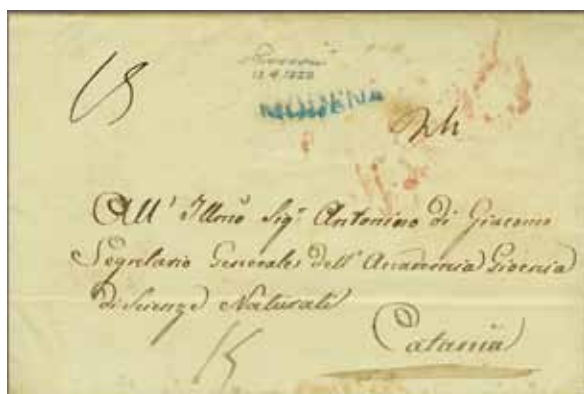 13.4.1829
MODENA
All' Illmo Sig.r Antonino di Giacomo
Segretario Generale dell' Accademia Gioenia
di Scienze Naturali
Catania
15